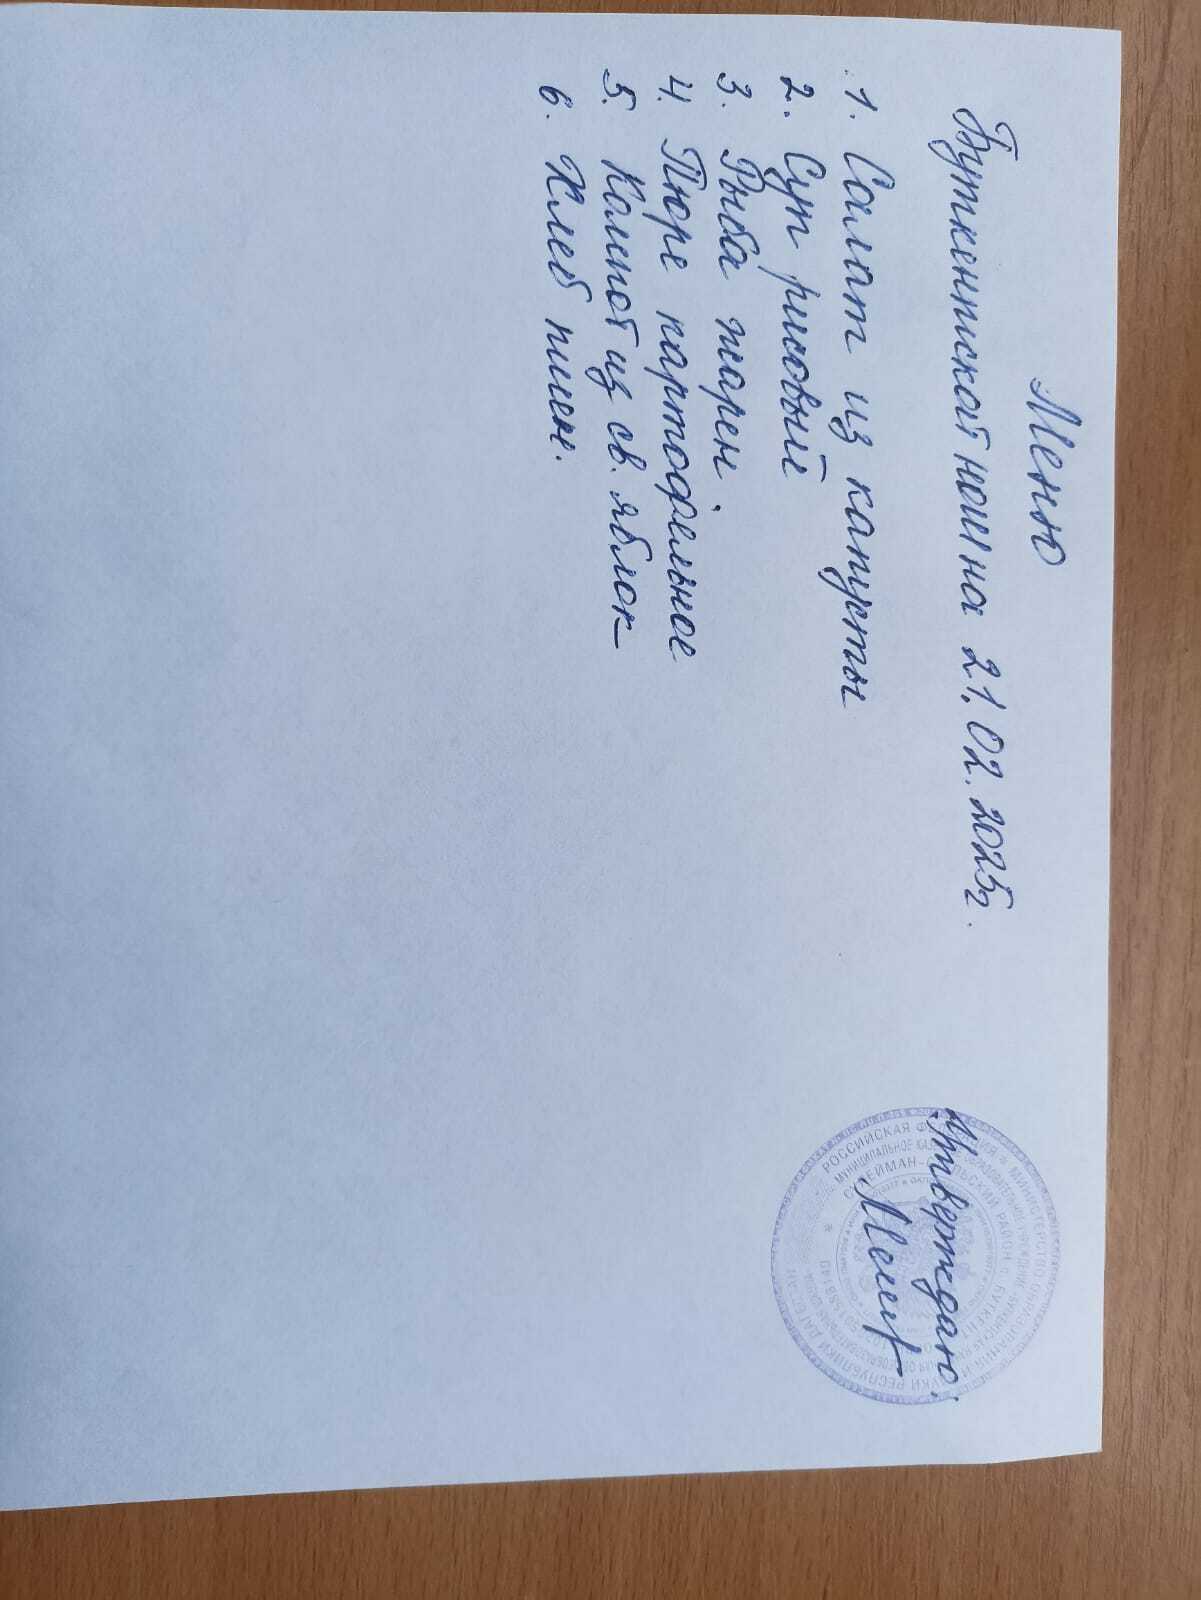 Меню
Буткентской нош на 21.02.2025г.
1. Салат из капусты
2. Суп рисовый
3. Рыба жарен.
4. Пюре картофельное
5. Компот из св. яблок
6. Хлеб пшен.
Утверждаю:
РОССИЙСКАЯ ФЕДЕРАЦИЯ * МИНИСТЕРСТВО ОБРАЗОВАНИЯ И НАУКИ РЕСПУБЛИКИ ДАГЕСТАН
СУЛЕЙМАН-СТАЛЬСКИЙ РАЙОН